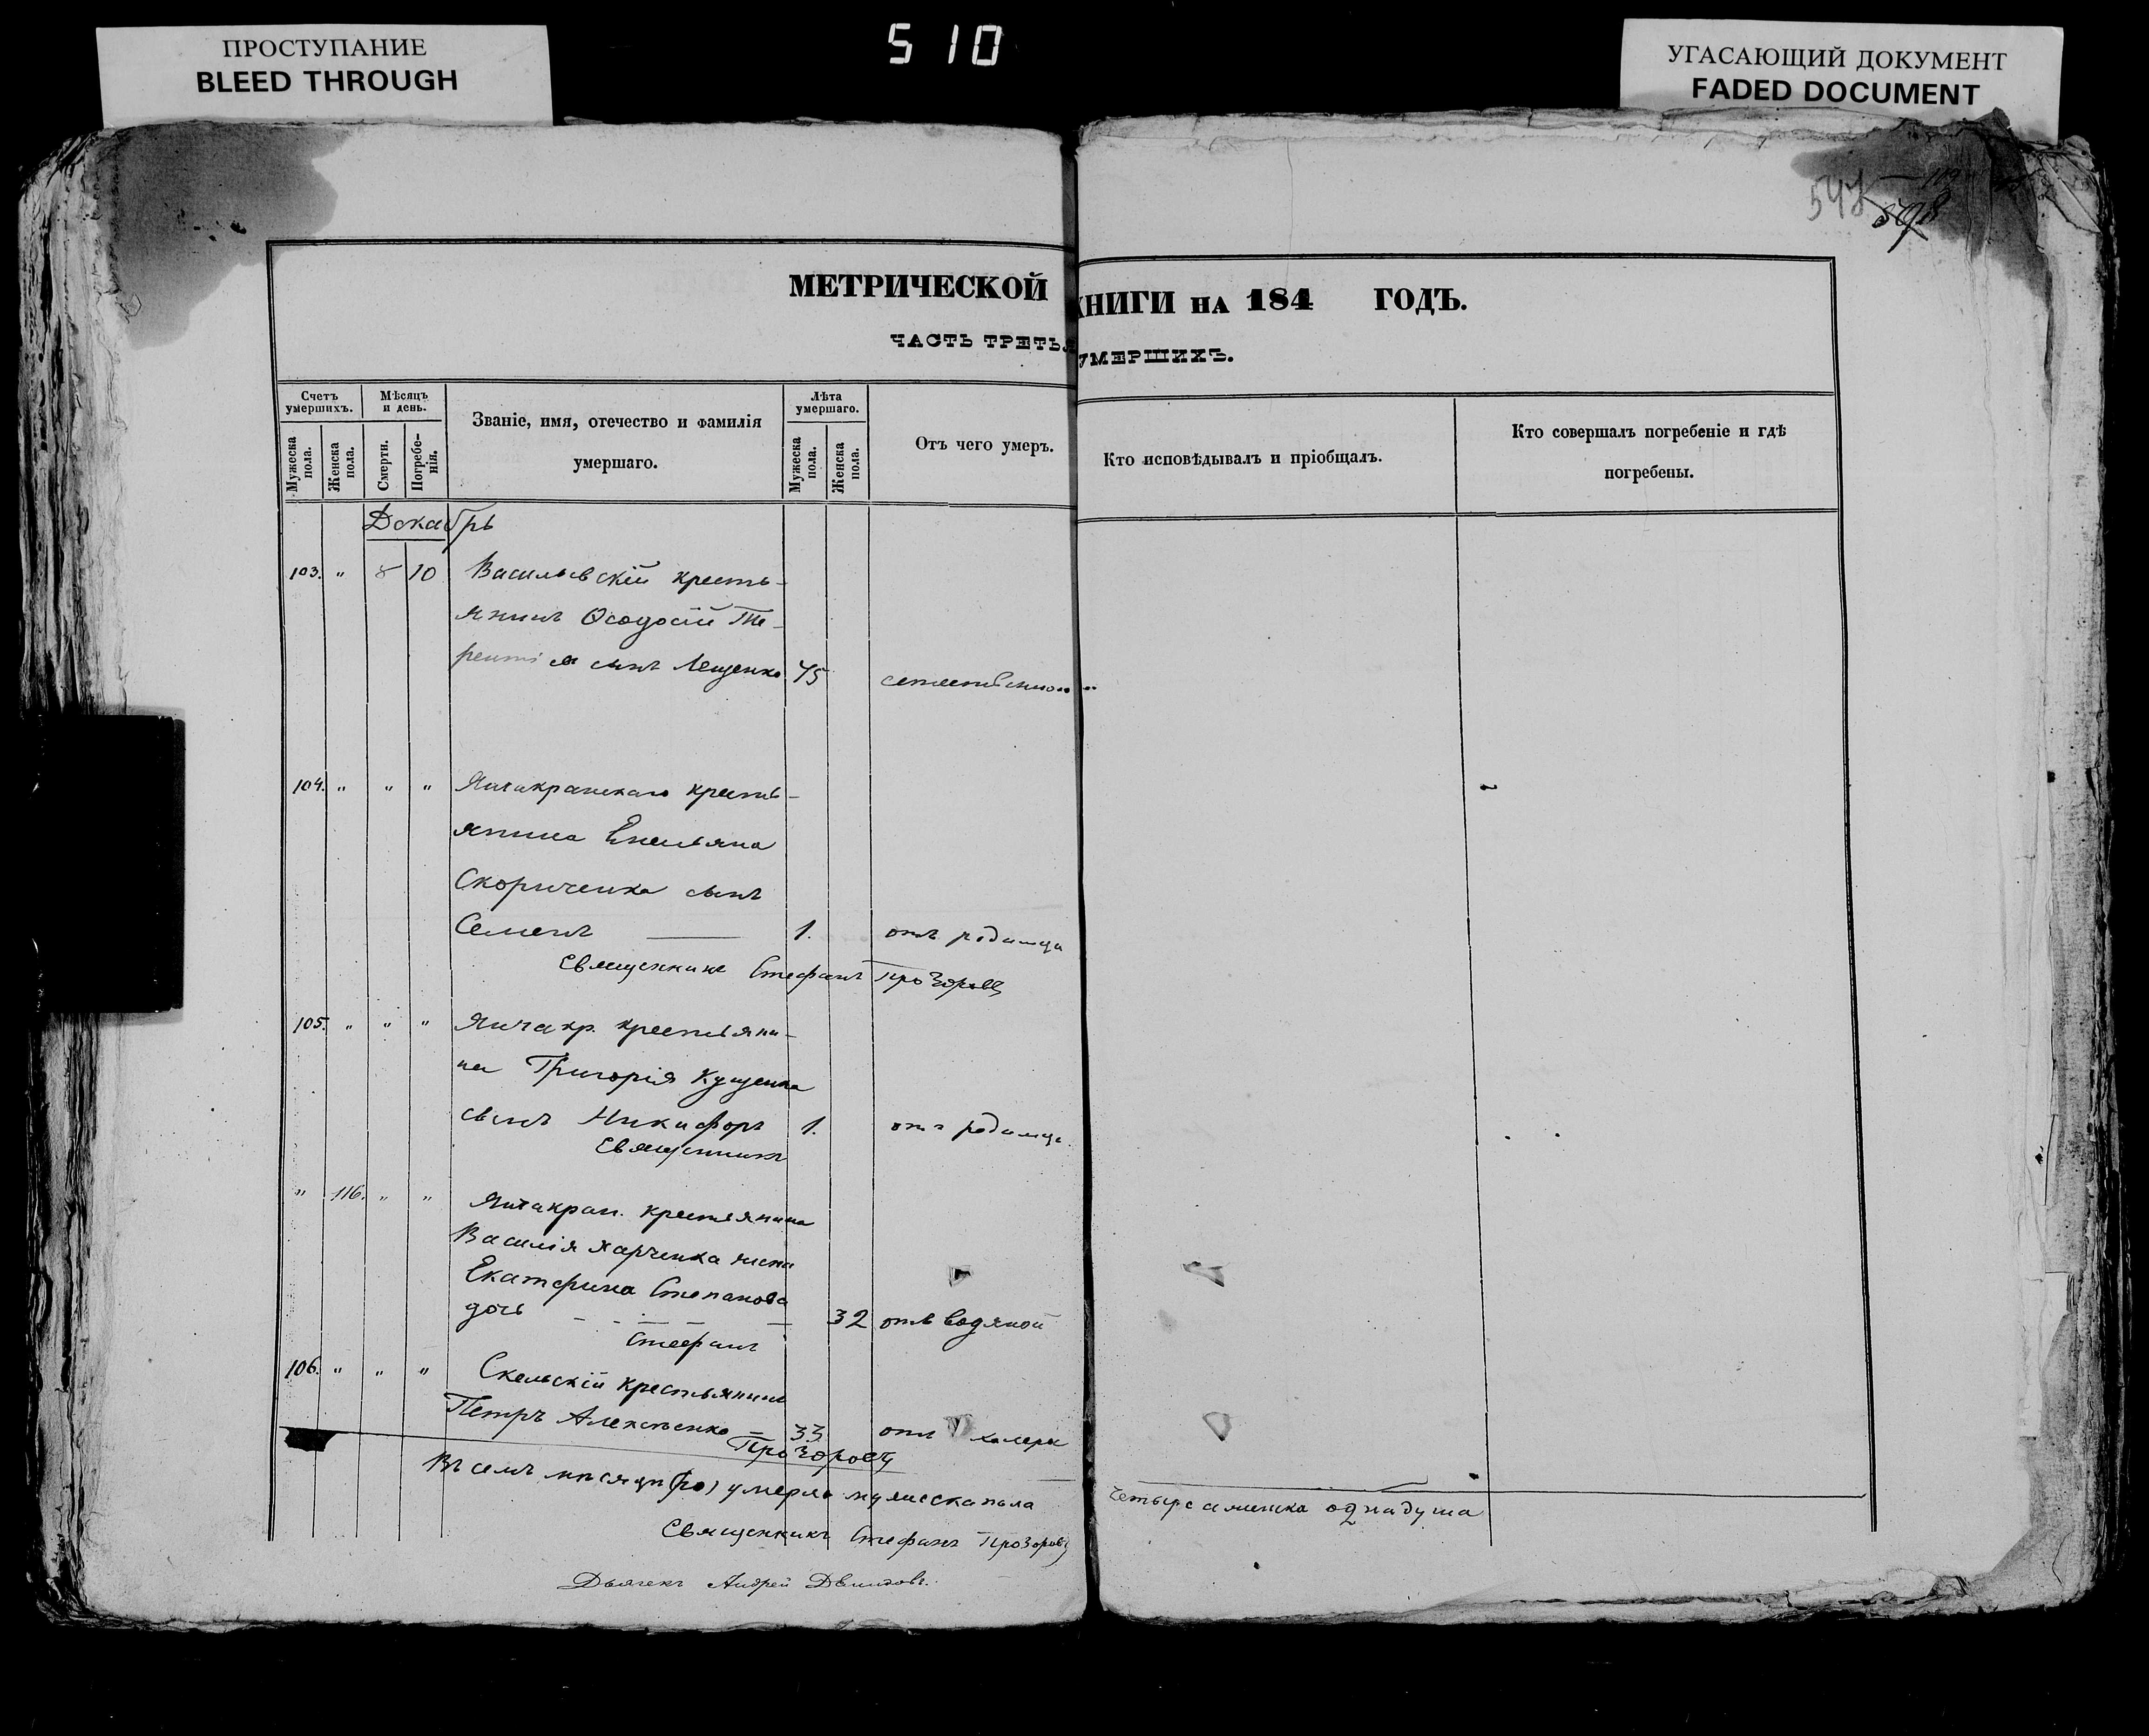 ПРОСТУПАНИЕ
BLEED THROUGH
510
УГАСАЮЩИЙ ДОКУМЕНТ
FADED DOCUMENT
МЕТРИЧЕСКОЙ КНИГИ НА 184 ГОДЪ.
ЧАСТЬ ТРЕТЬЯ УМЕРШИХЪ.
Счетъ умершихъ.
Мужеска пола.
Женска пола.
Мѣсяцъ и день.
Смерти.
Погребе-
нія.
Званіе, имя, отечество и фамилія
умершаго.
Лѣта умершаго.
Мужеска пола.
Женска пола.
Отъ чего умеръ.
Кто исповѣдывалъ и пріобщалъ.
Кто совершалъ погребеніе и гдѣ
погребены.
Декабрь
103. " 8 10 Васильевскій кресть-
янинъ Ѳеодосій Те-
рентіа сынъ Лещенко 75
104. " " " Янчакранскаго кресть-
янина Емельяна
Скориченка сынъ
Семенъ 1. отъ родимца
Священникъ Стефанъ Прозоровъ
105. " " " Янчакр. крестьяни-
на Григорія Куценка
сынъ Никифоръ 1. отъ родимца
Священникъ
" 116. " " Янчакран. крестьянина
Василія Харченка жена
Екатерина Степанова
дочь 32 отъ водяной
Стефанъ
106. " " " Скельскій крестьянинъ
Петръ Алексѣенко 33 отъ холеры
Прозоровъ
Въ семъ мѣсяцѣ умерло мужеска пола четыре а женска одна душа
Священникъ Стефанъ Прозоровъ
Дьячекъ Андрей